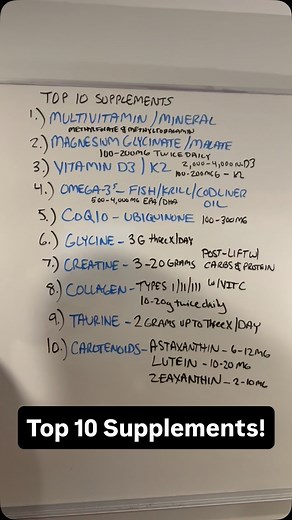 TOP 10 SUPPLEMENTS
1.) MULTIVITAMIN/MINERAL
METHYLFOLATE & METHYLCOBALAMIN
2.) MAGNESIUM GLYCINATE/MALATE
100-200MG TWICE DAILY
3.) VITAMIN D3/K2 2,000-4,000 IU D3
100-200MG - K2
4.) OMEGA-3S - FISH/KRILL/COD LIVER OIL
500-4,000MG EPA/DHA
5.) COQ10 - UBIQUINONE 100-300MG
6.) GLYCINE - 3G three X/DAY
7.) CREATINE - 3-20 GRAMS POST-LIFT W/ CARBS & PROTEIN
8.) COLLAGEN - TYPES I/II/III W/VIT C
10-20g twice daily
9.) TAURINE - 2 GRAMS UP TO Three X/DAY
10.) CAROTENOIDS - ASTAXANTHIN - 6-12MG
LUTEIN - 10-20MG
ZEAXANTHIN - 2-10MG
Top 10 Supplements!